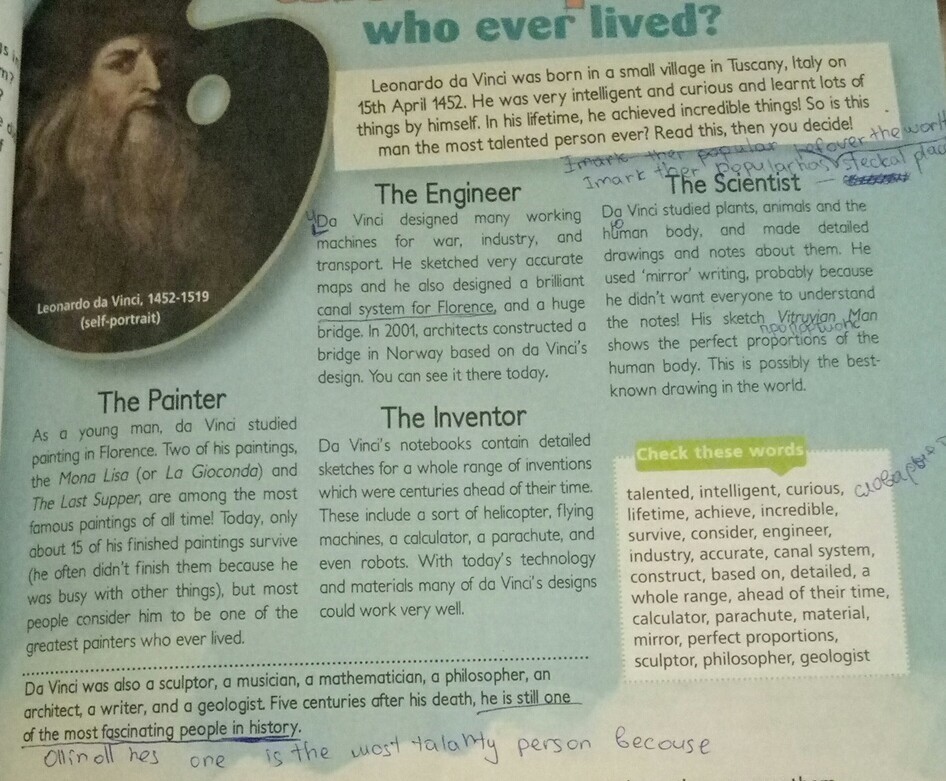 who ever lived?
Leonardo da Vinci was born in a small village in Tuscany, Italy on
15th April 1452. He was very intelligent and curious and learnt lots of
things by himself. In his lifetime, he achieved incredible things! So is this
man the most talented person ever? Read this, then you decide!
Imark ther popular
Imark ther popular
Leonardo da Vinci, 1452-1519
(self-portrait)
The Engineer
Da Vinci designed many working
machines for war, industry, and
transport. He sketched very accurate
maps and he also designed a brilliant
canal system for Florence, and a huge
bridge. In 2001, architects constructed a
bridge in Norway based on da Vinci's
design. You can see it there today.
The Scientist
Da Vinci studied plants, animals and the
human body, and made detailed
drawings and notes about them. He
used 'mirror' writing, probably because
he didn't want everyone to understand
the notes! His sketch Vitruvian Man
shows the perfect proportions of the
human body. This is possibly the best-
known drawing in the world.
The Painter
As a young man, da Vinci studied
painting in Florence. Two of his paintings,
the Mona Lisa (or La Gioconda) and
The Last Supper, are among the most
famous paintings of all time! Today, only
about 15 of his finished paintings survive
(he often didn't finish them because he
was busy with other things), but most
people consider him to be one of the
greatest painters who ever lived.
The Inventor
Da Vinci's notebooks contain detailed
sketches for a whole range of inventions
which were centuries ahead of their time.
These include a sort of helicopter, flying
machines, a calculator, a parachute, and
even robots. With today's technology
and materials many of da Vinci's designs
could work very well.
Check these words
talented, intelligent, curious,
lifetime, achieve, incredible,
survive, consider, engineer,
industry, accurate, canal system,
construct, based on, detailed, a
whole range, ahead of their time,
calculator, parachute, material,
mirror, perfect proportions,
sculptor, philosopher, geologist
Da Vinci was also a sculptor, a musician, a mathematician, a philosopher, an
architect, a writer, and a geologist. Five centuries after his death, he is still one
of the most fascinating people in history.
one is the most talanty person becouse